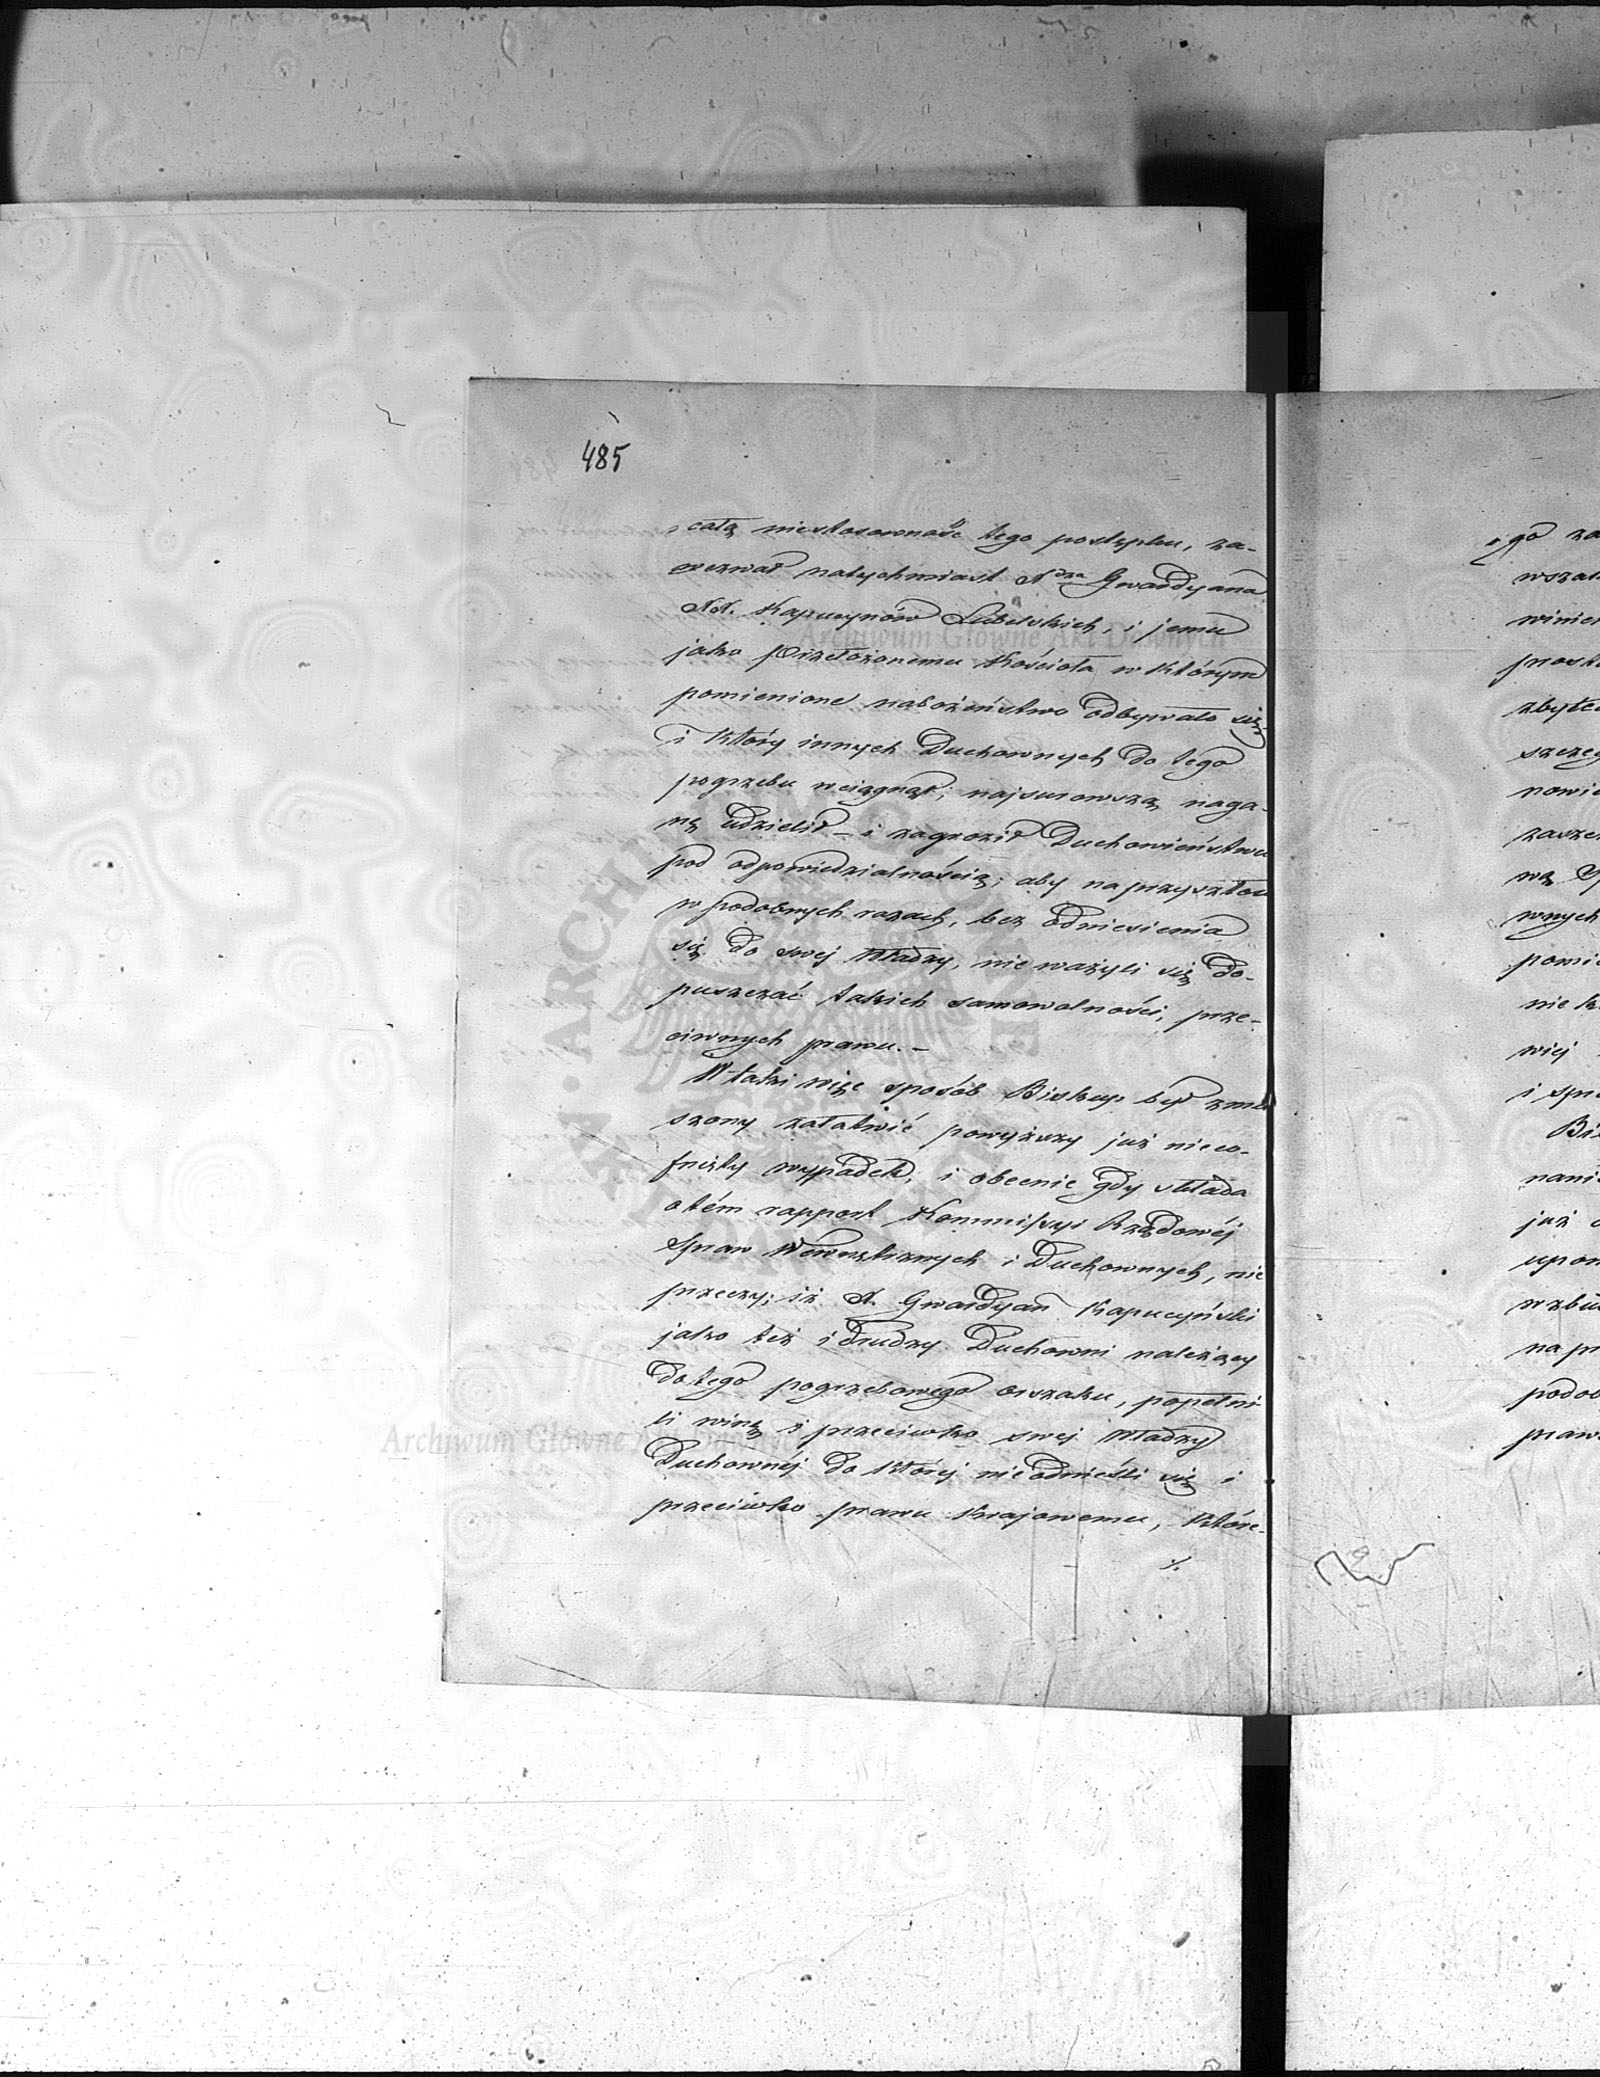 485
całą niestosowność tego postępku, za-
wezwał natychmiast Xdza Gwardyana
XX. Kapucynów Lubelskich, i jemu
jako Przełożonemu Kościoła w którym
pomienione nabożeństwo odbywało się
i który innych Duchownych do tego
pogrzebu wciągnął; najsurowszą naga-
nę udzielił – i zagroził Duchowieństwu
pod odpowiedzialnością; aby na przyszłość
w podobnych razach, bez odniesienia
się do swej Władzy, nie ważyli się do-
puszczać takich samowolności, prze-
ciwnych prawu. –
W taki więc sposób Biskup był zmu-
szony załatwić powyższy już nieco-
fnięty wypadek, i obecnie gdy składa
o tém rapport Kommissyi Rządowéj
Spraw Wewnętrznych i Duchownych, nie
przeczy; iż X. Gwardyan Kapucyński
jako też i drudzy Duchowni należący
do tego pogrzebowego orszaku, popełni-
li winę i przeciwko swej Władzy
Duchownéj do której nie odnieśli się i
przeciwko prawu krajowemu, które-
./.
go za
winien
zbyte
szczeg
nowie
wnych
pomie
nie
wiej
i spr
Bi
nani
już
upom
na pr
podob
praw
Archiwum Główne Akt Dawnych
Archiwum Główne Akt Dawnych